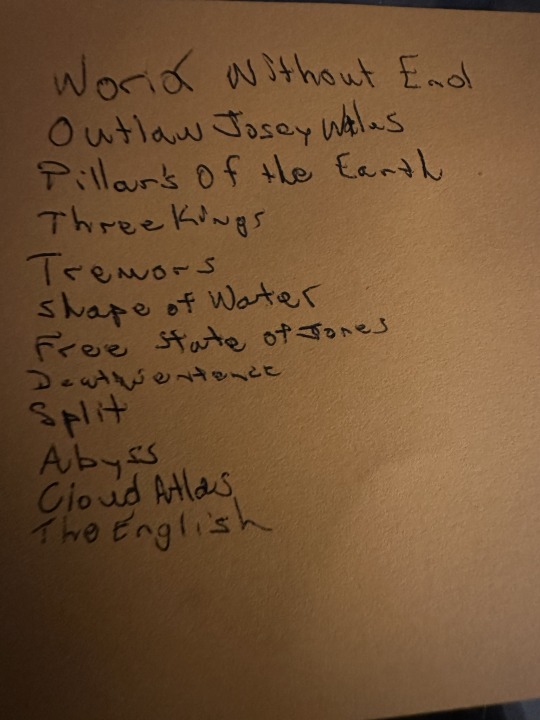 World Without End
Outlaw Josey Wales
Pillars Of the Earth
Three Kings
Tremors
Shape of Water
Free State of Jones
Death Sentence
Split
Abyss
Cloud Atlas
The English